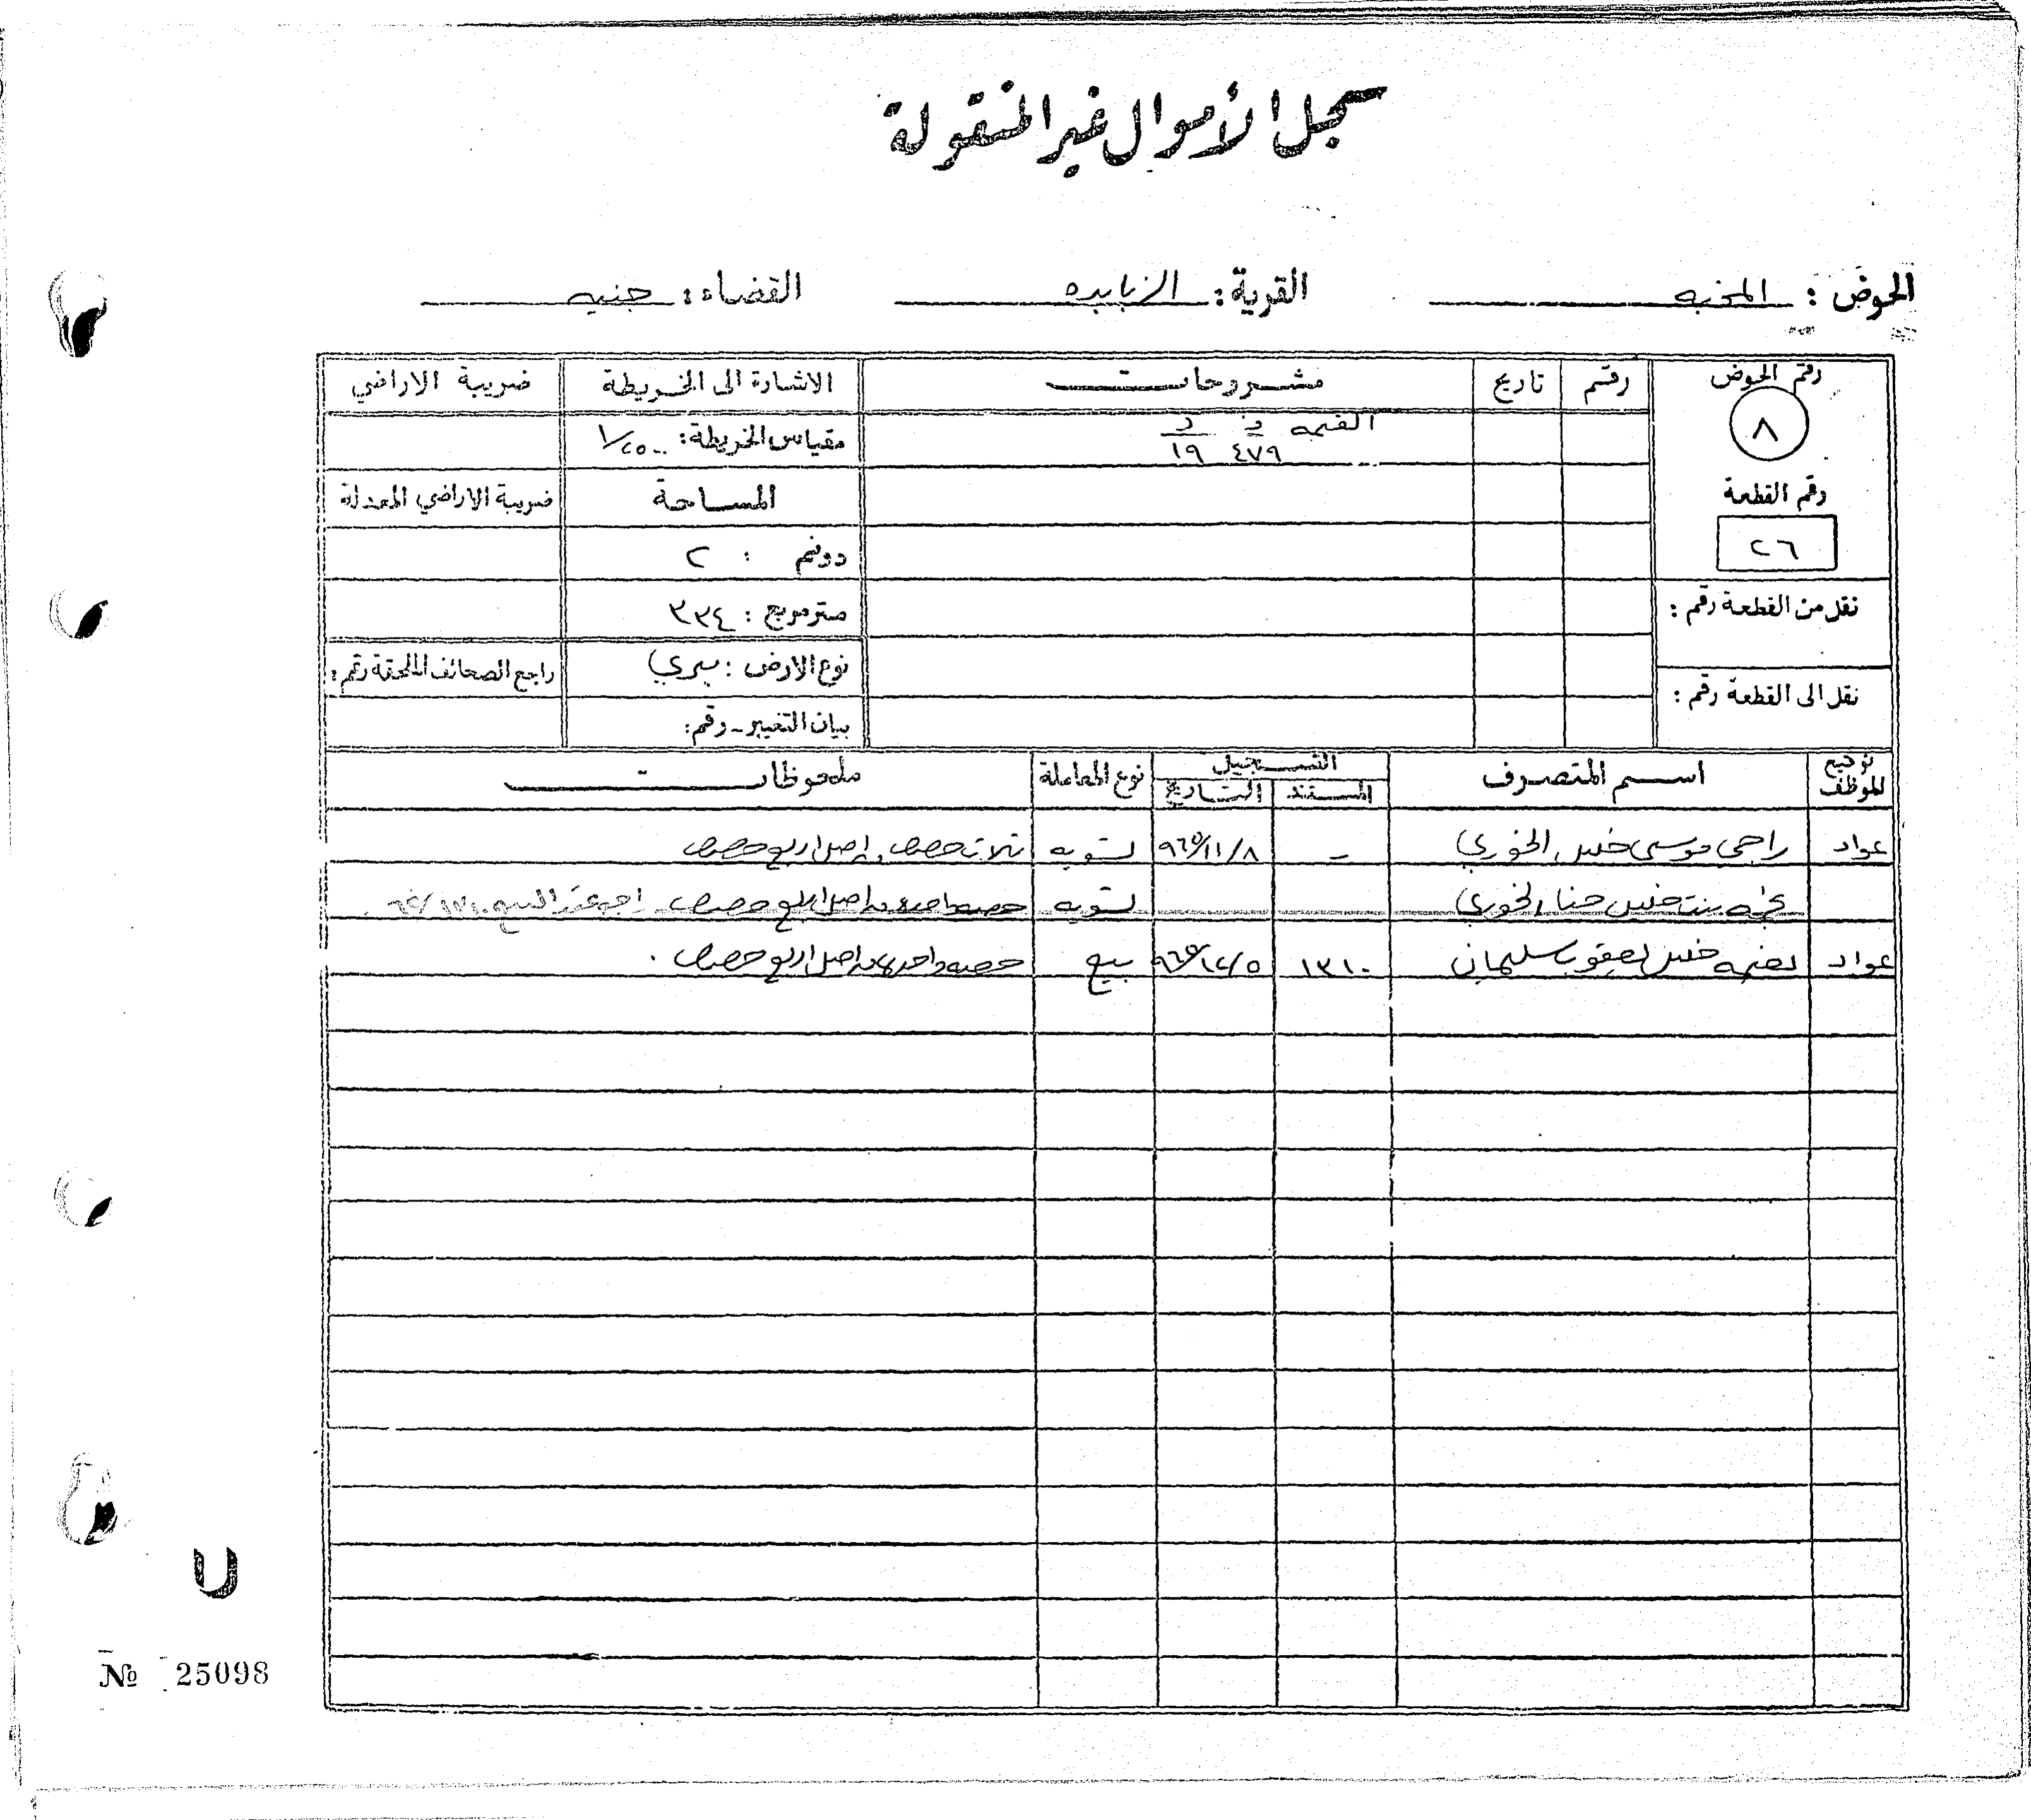 سجل الأموال غير المنقولة
الحوض : المخبه القرية : الزبابده القضاء : جنين
رقم الحوض رقم تاريخ مشروحات الاشارة الى الخريطة ضريبة الاراضي
٨ القيمه ف د مقياس الخريطة : ١/٢٥٠٠
٤٧٩ ١٩
رقم القطعة المساحة ضريبة الاراضي المعدلة
٢٦ دونم : ٢
نقل من القطعة رقم : متر مربع : ٣٣٤
نوع الارض : ميري راجع الصحائف الملحقة رقم :
نقل الى القطعة رقم : بيان التغيير - رقم :
توقيع الموظف اسم المتصرف التسجيل نوع المعاملة ملحوظات
المستند التاريخ
عواد راجي موسى خليل الخوري - ٩٦٥/١١/٨ تسويه ثلاث حصص من اصل اربع حصص
بنت خليل حنا الخوري تسويه حصه واحده من اصل اربع حصص
عواد خليل يعقوب سليمان ١٣١٠ ٩٦٥/١٢/٥ بيع حصه واحده من اصل اربع حصص .
№ 25098